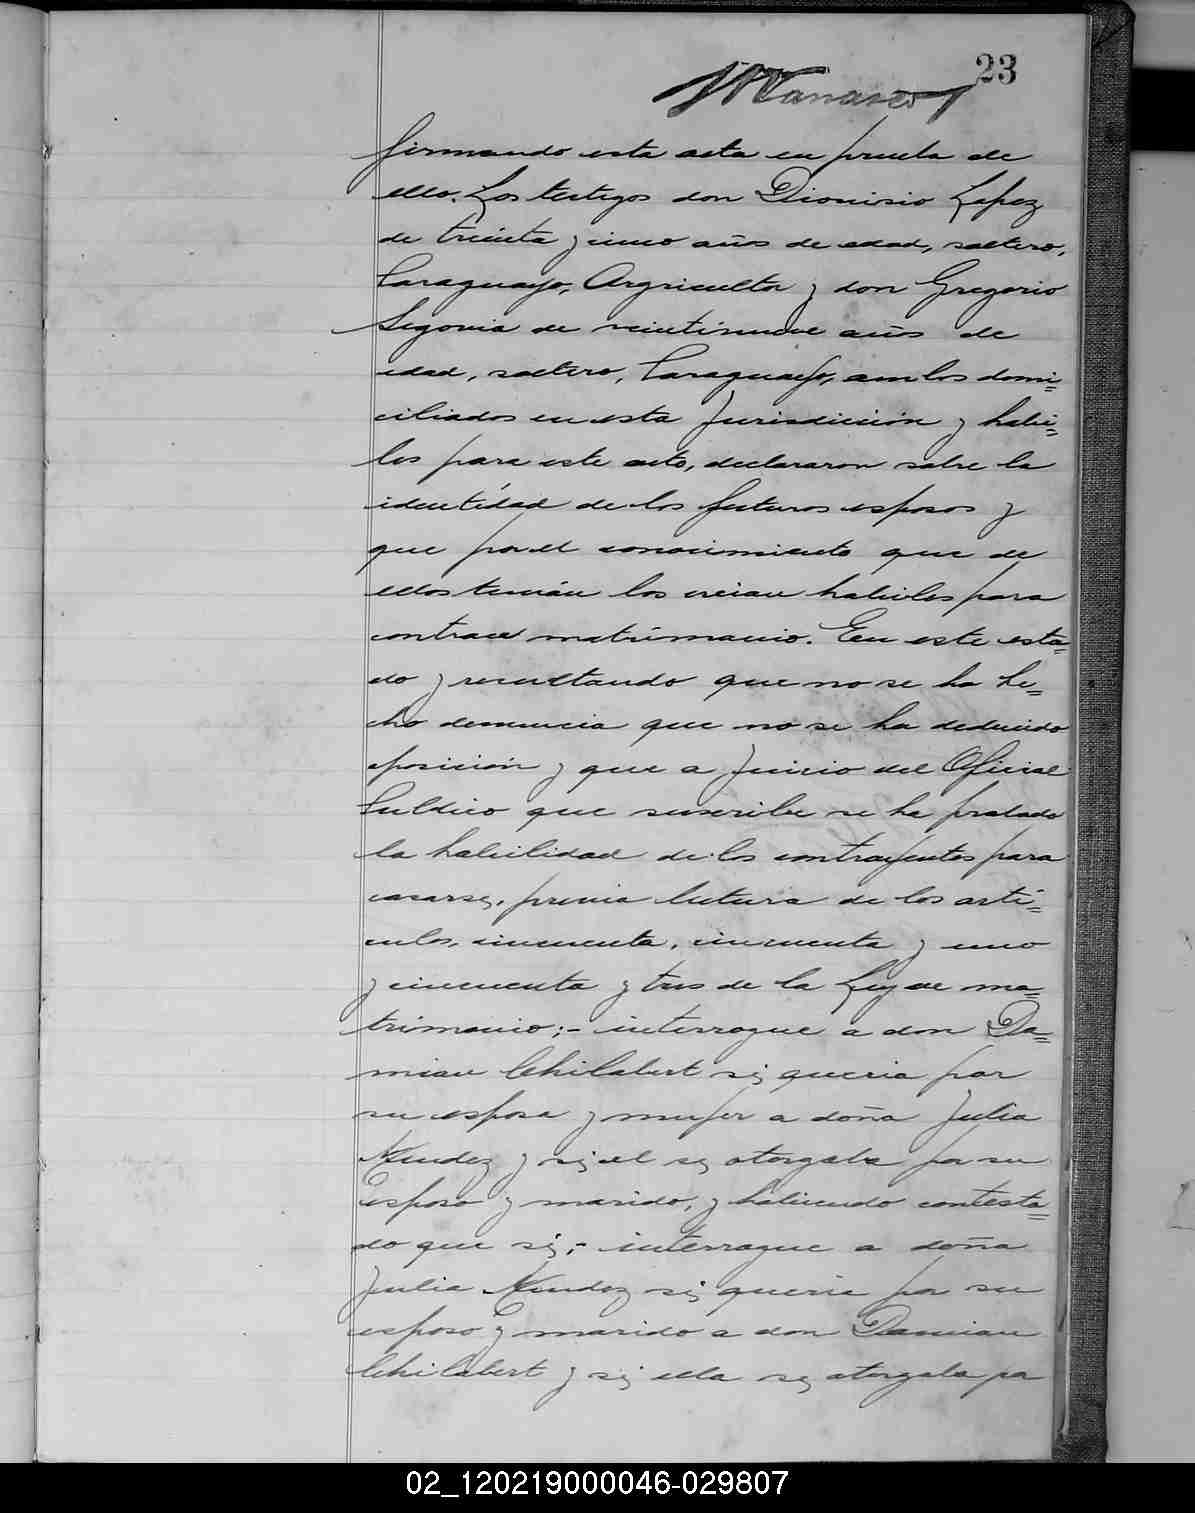 23
firmando esta acta en prueba de
ello. Los testigos don Dionisio Lopez
de treinta y cinco años de edad, soltero,
Paraguayo, Argricultor y don Gregorio
Segovia de veintinueve años de
edad, soltero, Paraguayo, ambos domi=
ciliados en esta Jurisdicción y habi=
les para este acto, declararon sobre la
identidad de los futuros esposos y
que por el conocimiento que de
ellos tenián los creian habiles para
contraer matrimonio. En este esta=
do y resultando que no se ha he=
cho denuncia que no se ha deducido
oposición y que a Juicio del Oficial
Publico que suscribe se ha probado
la habilidad de los contrayentes para
casarse, previa letura de los arti=
culos, cincuenta, cincuenta y uno
y cincuenta y tres de la Ley de ma=
trimonio;- interrogue a don Da=
mian Chilabert si queria por
su esposa y mujer a doña Julia
Mendez y si el se otorgaba por su
Esposo y marido, y habiendo contesta=
do que si;- interrogue a doña
Julia Mendez si queria por su
esposo y marido a don Damian
Chilabert y si ella se otorgaba po
02_120219000046-029807